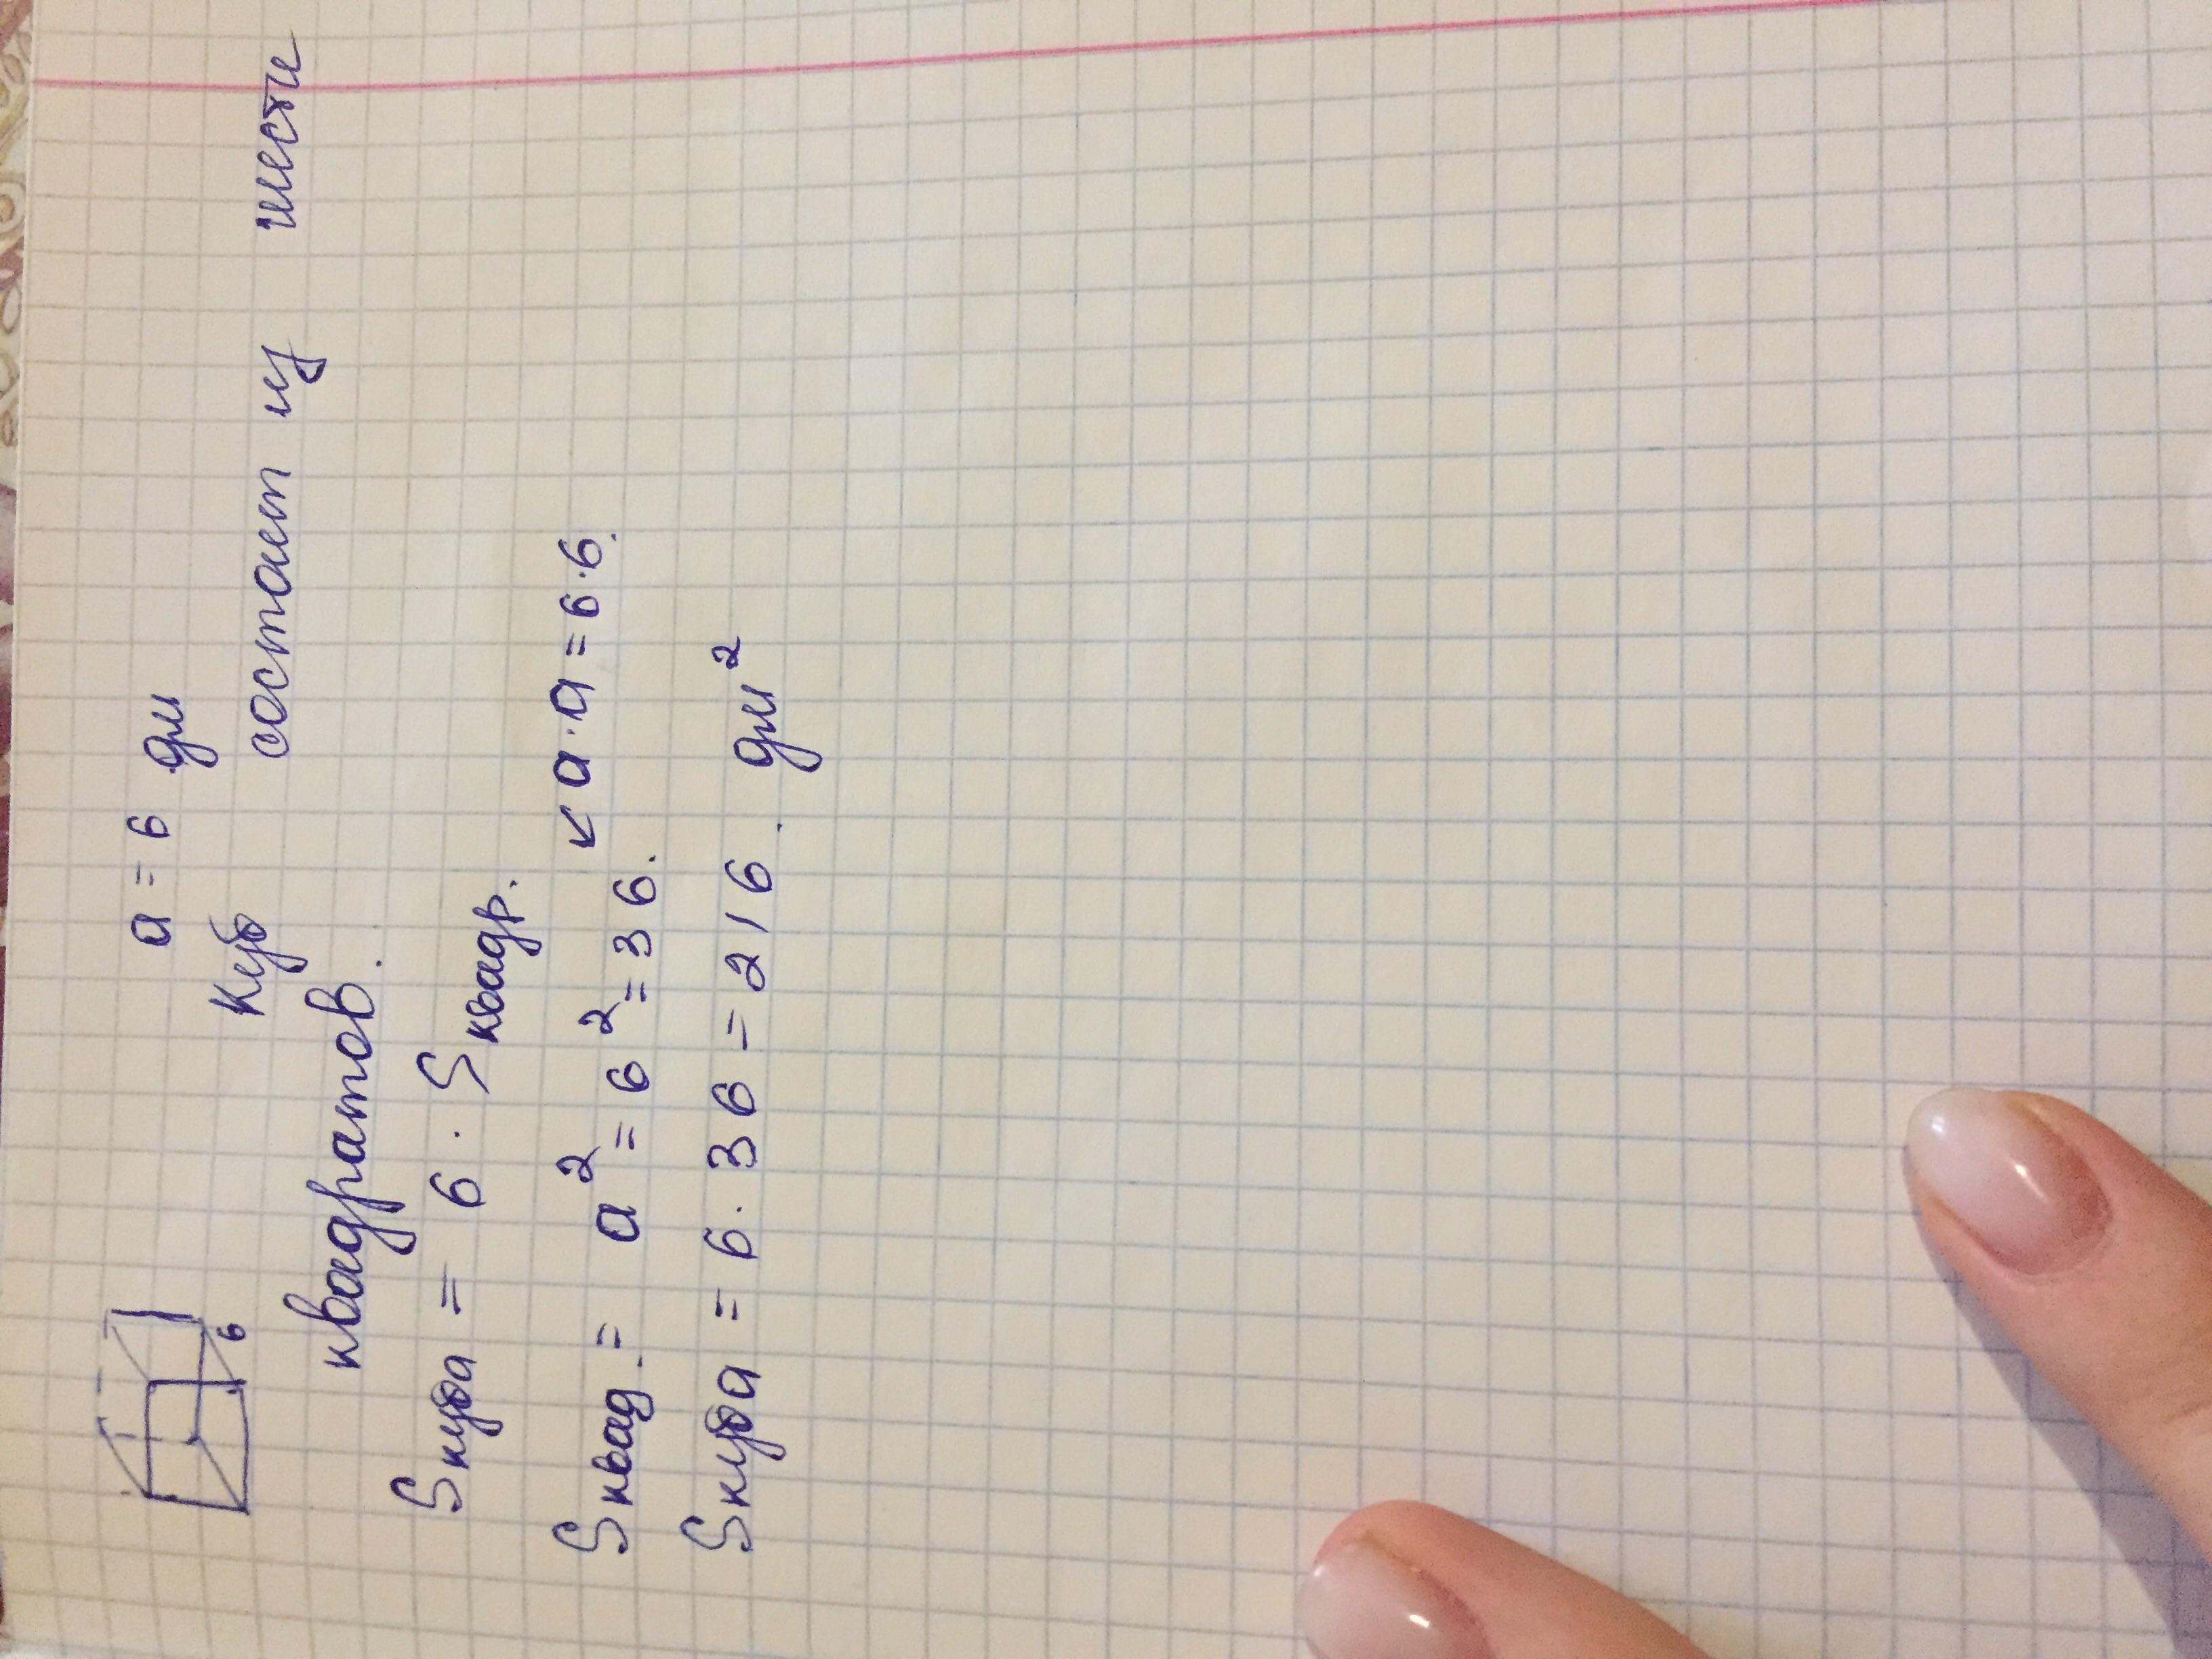 a = 6 дм
Куб состоит из шести
квадратов.
Sкуба = 6 · Sквадр.
Sквад. = a² = 6² = 36. ↙ a · a = 6 · 6.
Sкуба = 6 · 36 = 216. дм²
6